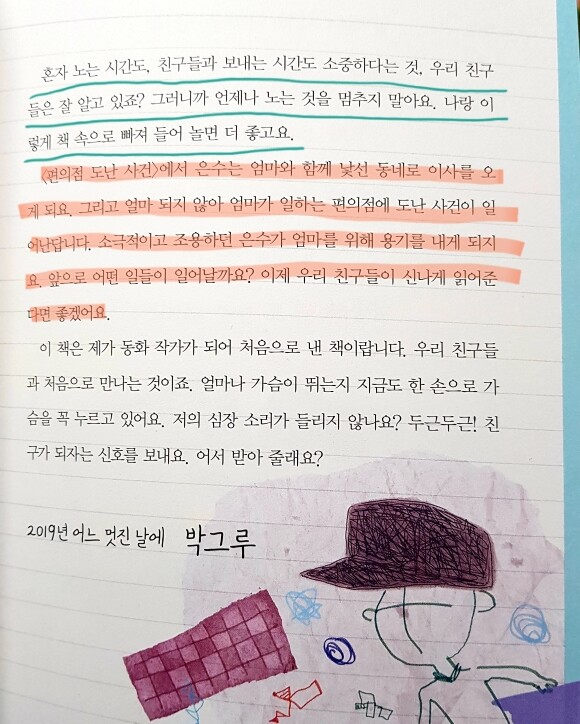 혼자 노는 시간도, 친구들과 보내는 시간도 소중하다는 것, 우리 친구
들은 잘 알고 있죠? 그러니까 언제나 노는 것을 멈추지 말아요. 나랑 이
렇게 책 속으로 빠져 들어 놀면 더 좋고요.
〈편의점 도난 사건〉에서 은수는 엄마와 함께 낯선 동네로 이사를 오
게 되요. 그리고 얼마 되지 않아 엄마가 일하는 편의점에 도난 사건이 일
어난답니다. 소극적이고 조용하던 은수가 엄마를 위해 용기를 내게 되지
요. 앞으로 어떤 일들이 일어날까요? 이제 우리 친구들이 신나게 읽어준
다면 좋겠어요.
이 책은 제가 동화 작가가 되어 처음으로 낸 책이랍니다. 우리 친구들
과 처음으로 만나는 것이죠. 얼마나 가슴이 뛰는지 지금도 한 손으로 가
슴을 꼭 누르고 있어요. 저의 심장 소리가 들리지 않나요? 두근두근! 친
구가 되자는 신호를 보내요. 어서 받아 줄래요?
2019년 어느 멋진 날에 박그루